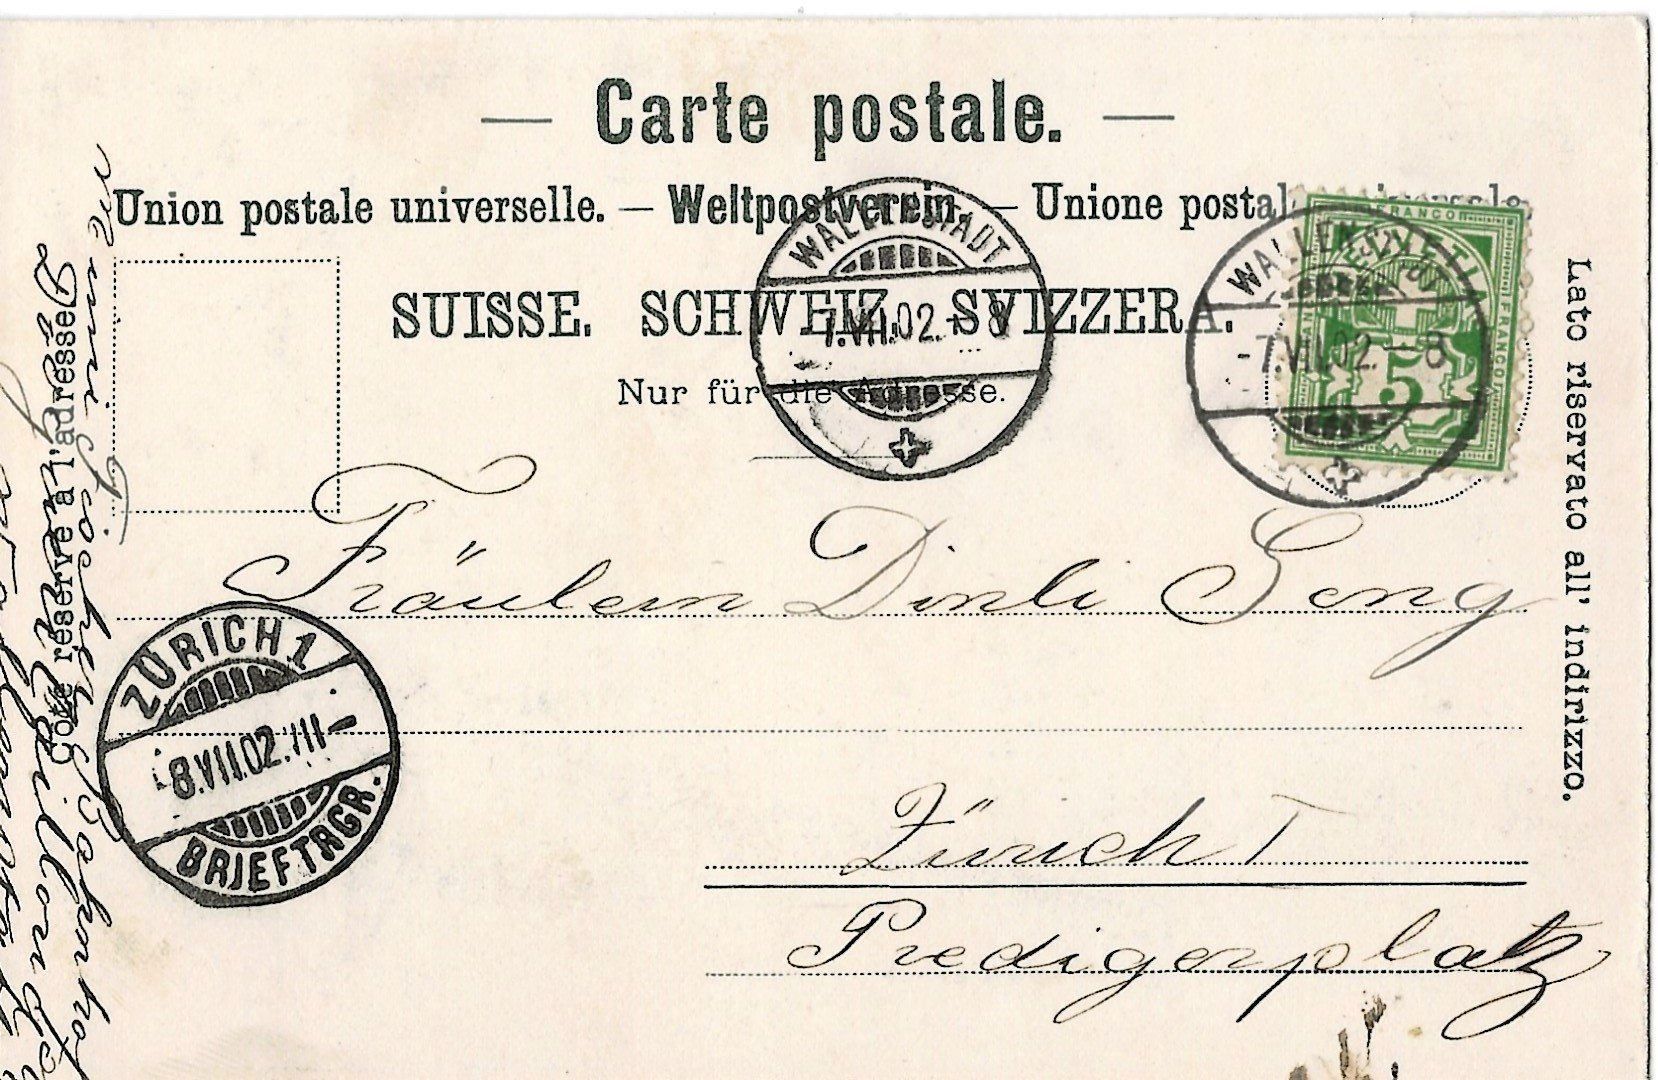 — Carte postale. —
Union postale universelle. — Weltpostverein. — Unione postale universale.
SUISSE. SCHWEIZ. SVIZZERA.
Nur für die Adresse.
Côté réservé à l'adresse.
Lato riservato all' indirizzo.
WALLENSTADT
7.VII.02.-8
WALLENSTADT
-7.VII.02.-8
FRANCO
HELVETIA
5
Fräulein Dinli Seng
Zürich I
Predigerplatz
ZÜRICH 1
-8.VII.02.III-
BRIEFTRGR.
Bahnhof